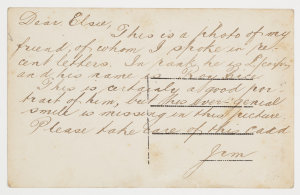 Dear Elsie,
This is a photo of my
friend, of whom I spoke in re-
cent letters. In rank he is
and his name is
This is certainly a good por-
trait of him, but his ever-genial
smile is missing in this picture
Please take care of this card
Jim